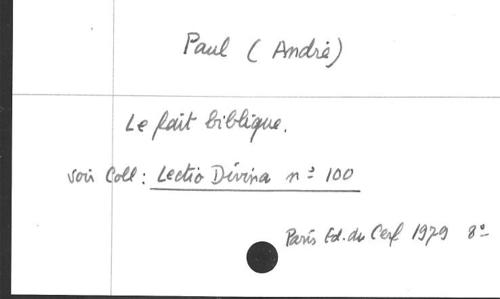 Paul (André)
Le fait biblique.
voir Coll: Lectio Divina nº 100
Paris Ed. du Cerf 1979 8º